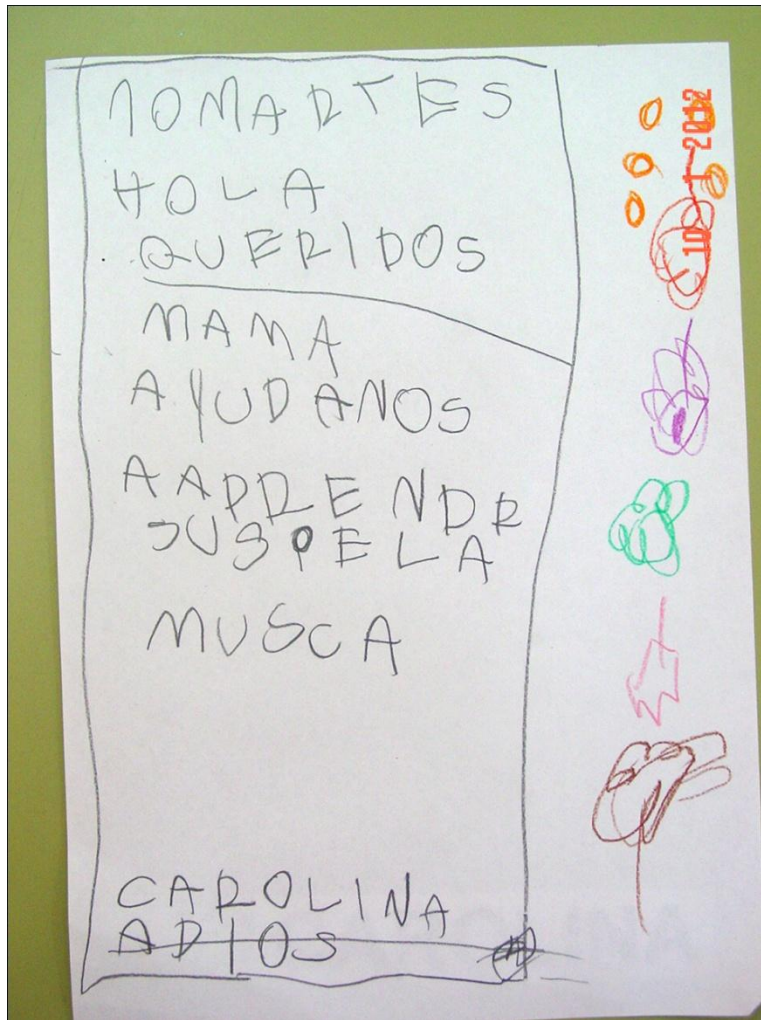 10 MARTES
HOLA
QUERIDOS
MAMA
AYUDANOS
A APRENDR
SUSPELA
MUSCA
CAROLINA
ADIOS
10 1 2012